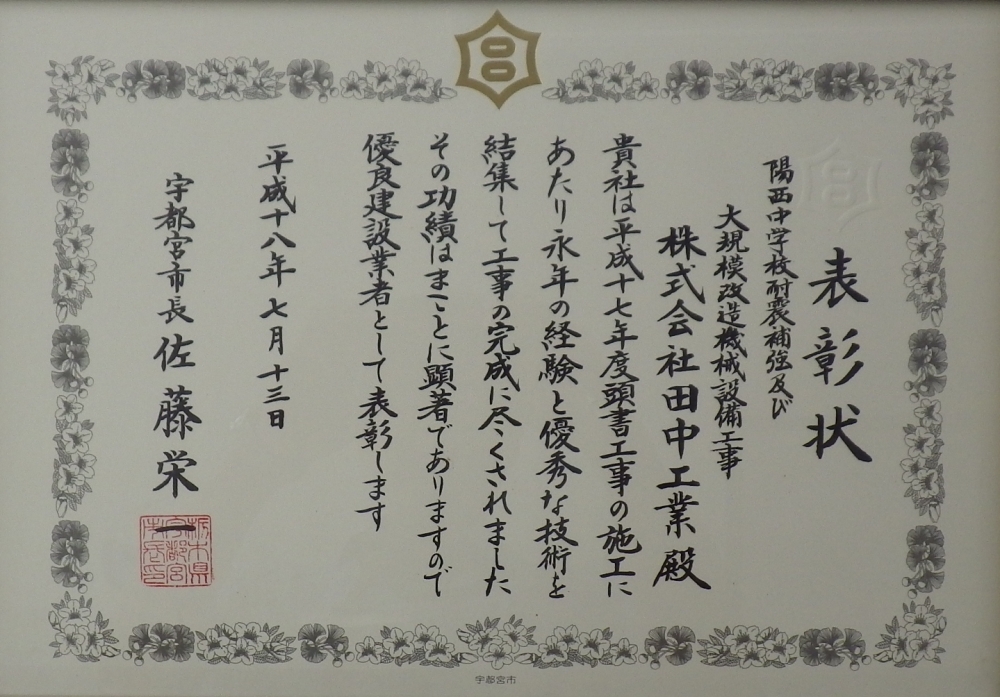 表彰状
陽西中学校耐震補強及び
大規模改造機械設備工事
株式会社田中工業殿
貴社は平成十七年度頭書工事の施工に
あたり永年の経験と優秀な技術を
結集して工事の完成に尽くされました
その功績はまことに顕著でありますので
優良建設業者として表彰します
平成十八年七月十三日
宇都宮市長 佐藤栄一
栃木県
宇都宮
市長印
宇都宮市